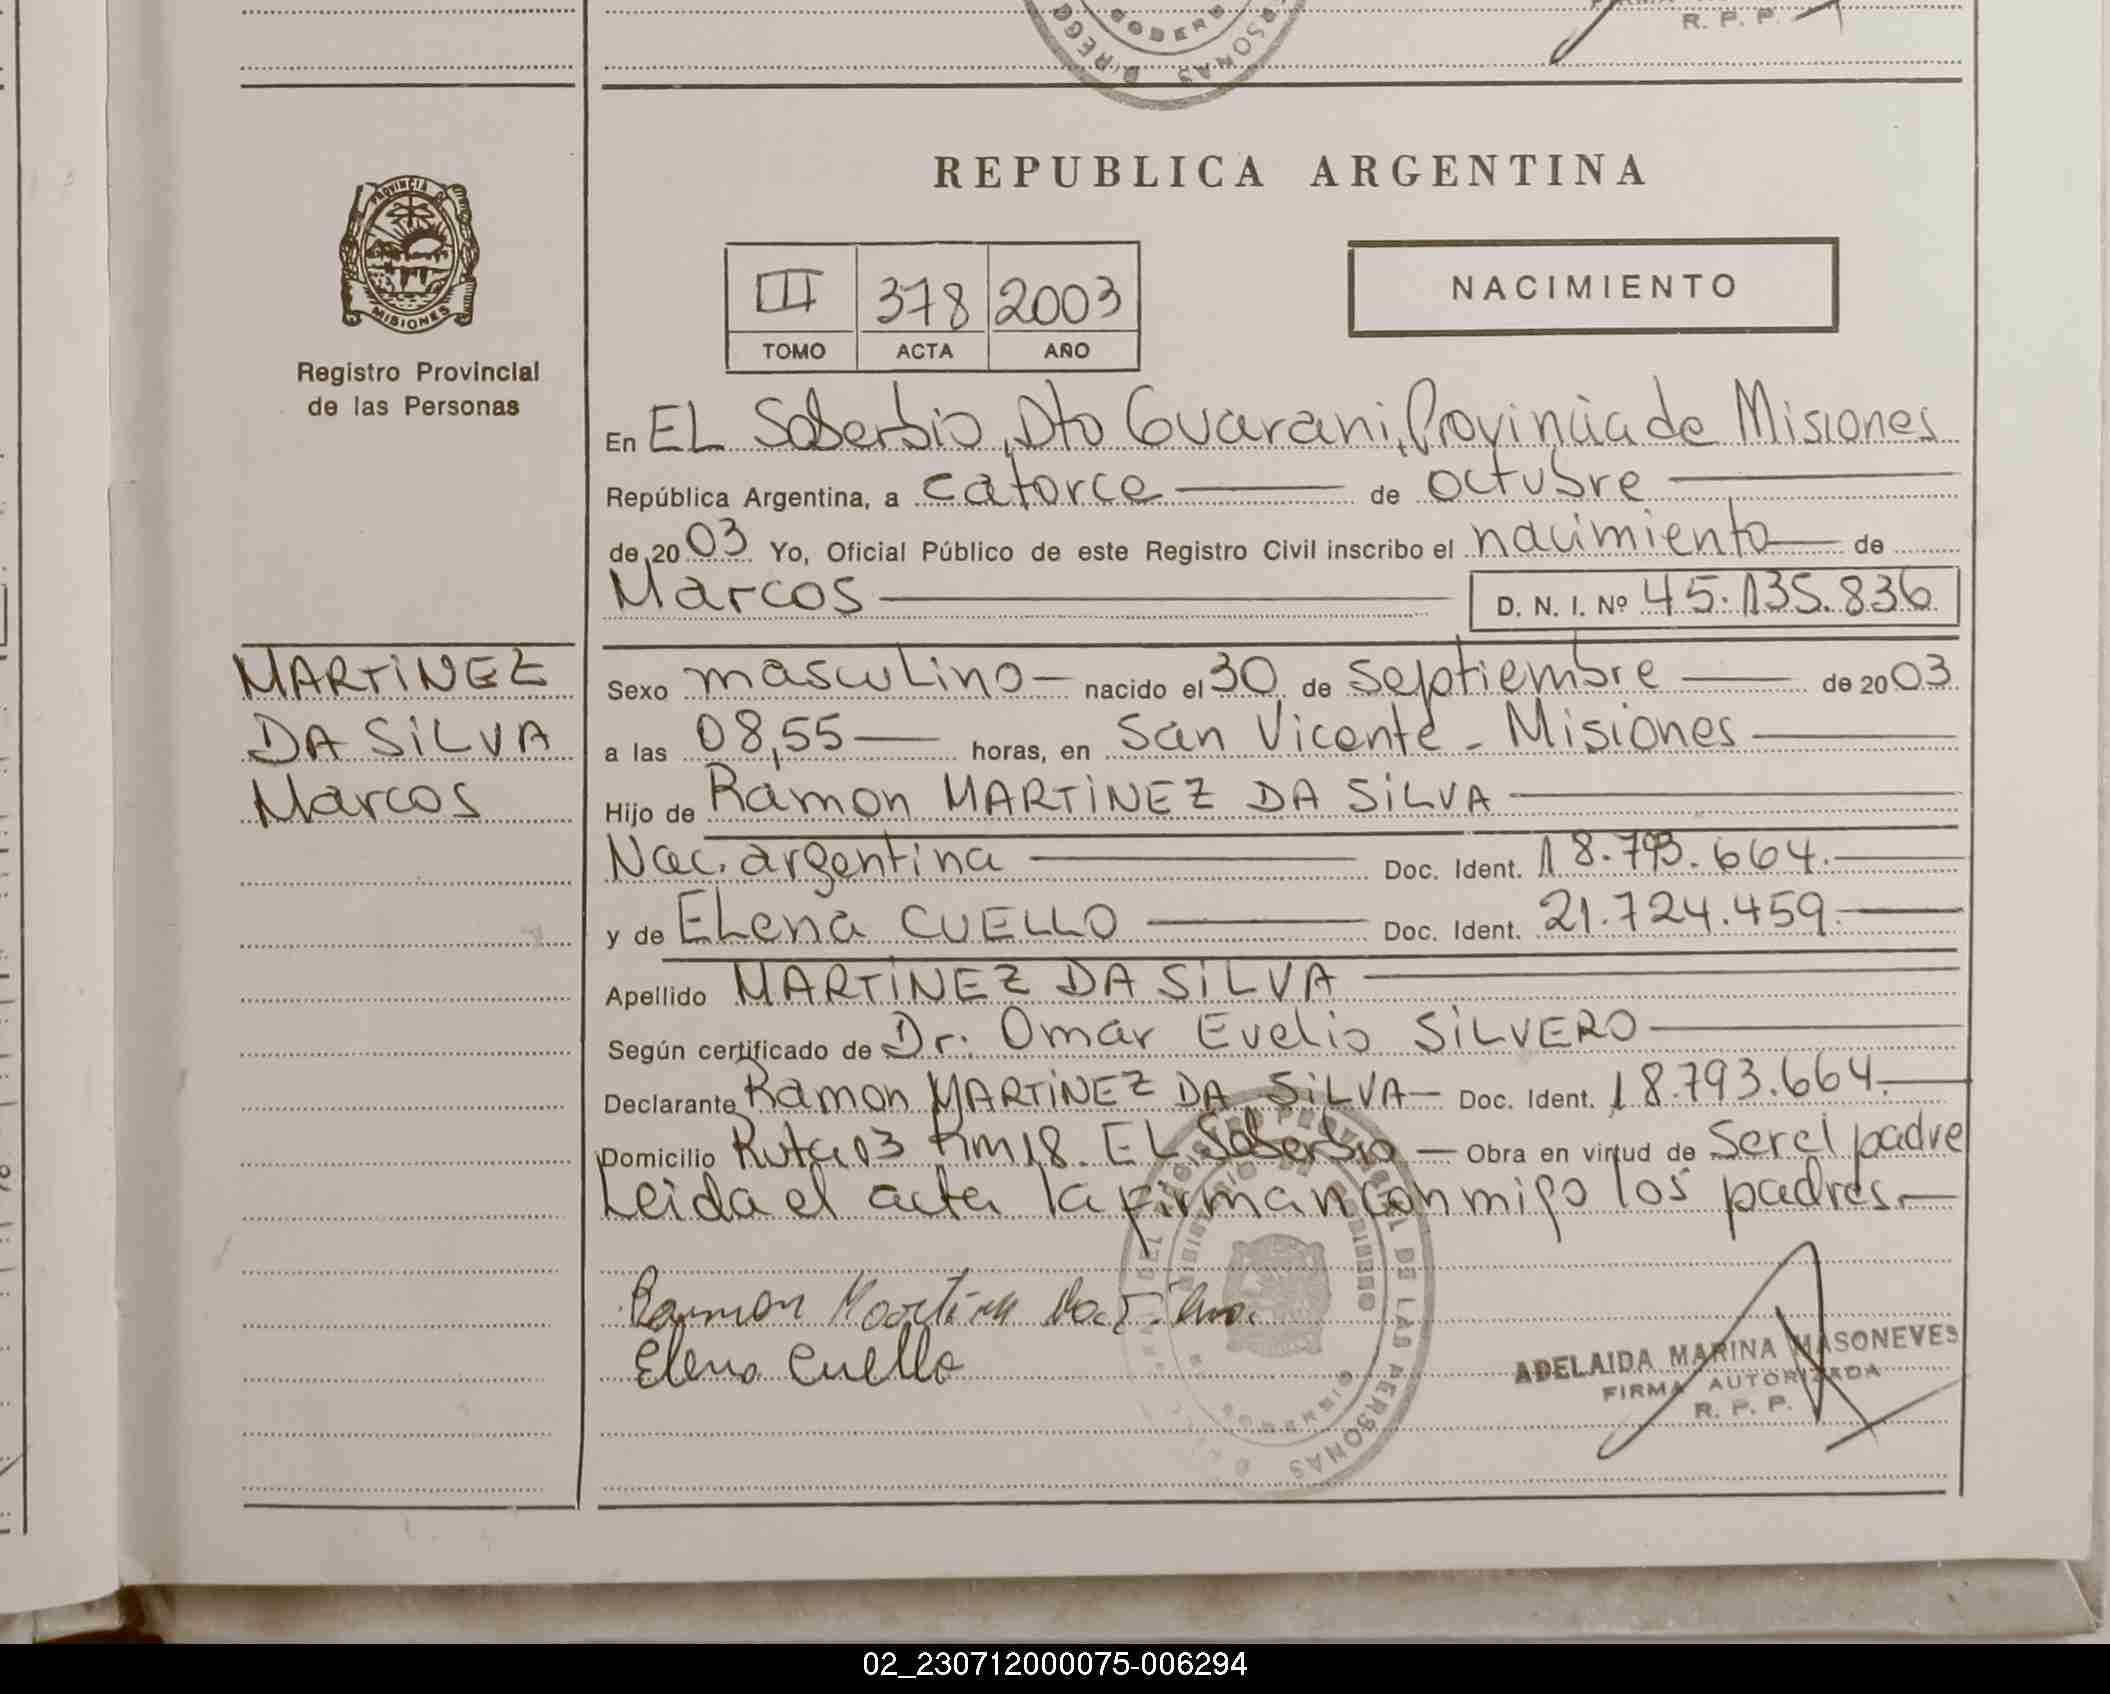 R. P. P.
REPUBLICA ARGENTINA
PROVINCIA DE
MISIONES
Registro Provincial
de las Personas
III 378 2003
TOMO ACTA AÑO
NACIMIENTO
En EL Soberbio, Dto Guarani, Provincia de Misiones
República Argentina, a catorce de octubre
de 20 03 Yo, Oficial Público de este Registro Civil inscribo el nacimiento de
Marcos D. N. I. Nº 45.135.836
MARTINEZ
DA SILVA
Marcos
Sexo masculino nacido el 30 de septiembre de 20 03
a las 08,55 horas, en San Vicente - Misiones
Hijo de Ramon MARTINEZ DA SILVA
Nac. argentina Doc. Ident. 18.793.664.
y de ELena CUELLO Doc. Ident. 21.724.459.
Apellido MARTINEZ DA SILVA
Según certificado de Dr. Omar Evelio SILVERO
Declarante Ramon MARTINEZ DA SILVA Doc. Ident. 18.793.664.
Domicilio Ruta 13 Km 18. EL Soberbio Obra en virtud de Ser el padre
Leida el acta la firman conmigo los padres.
Ramon Martinez Da Silva.
Elena Cuello
ADELAIDA MARINA MASONEVES
FIRMA AUTORIZADA
R. P. P.
02_230712000075-006294